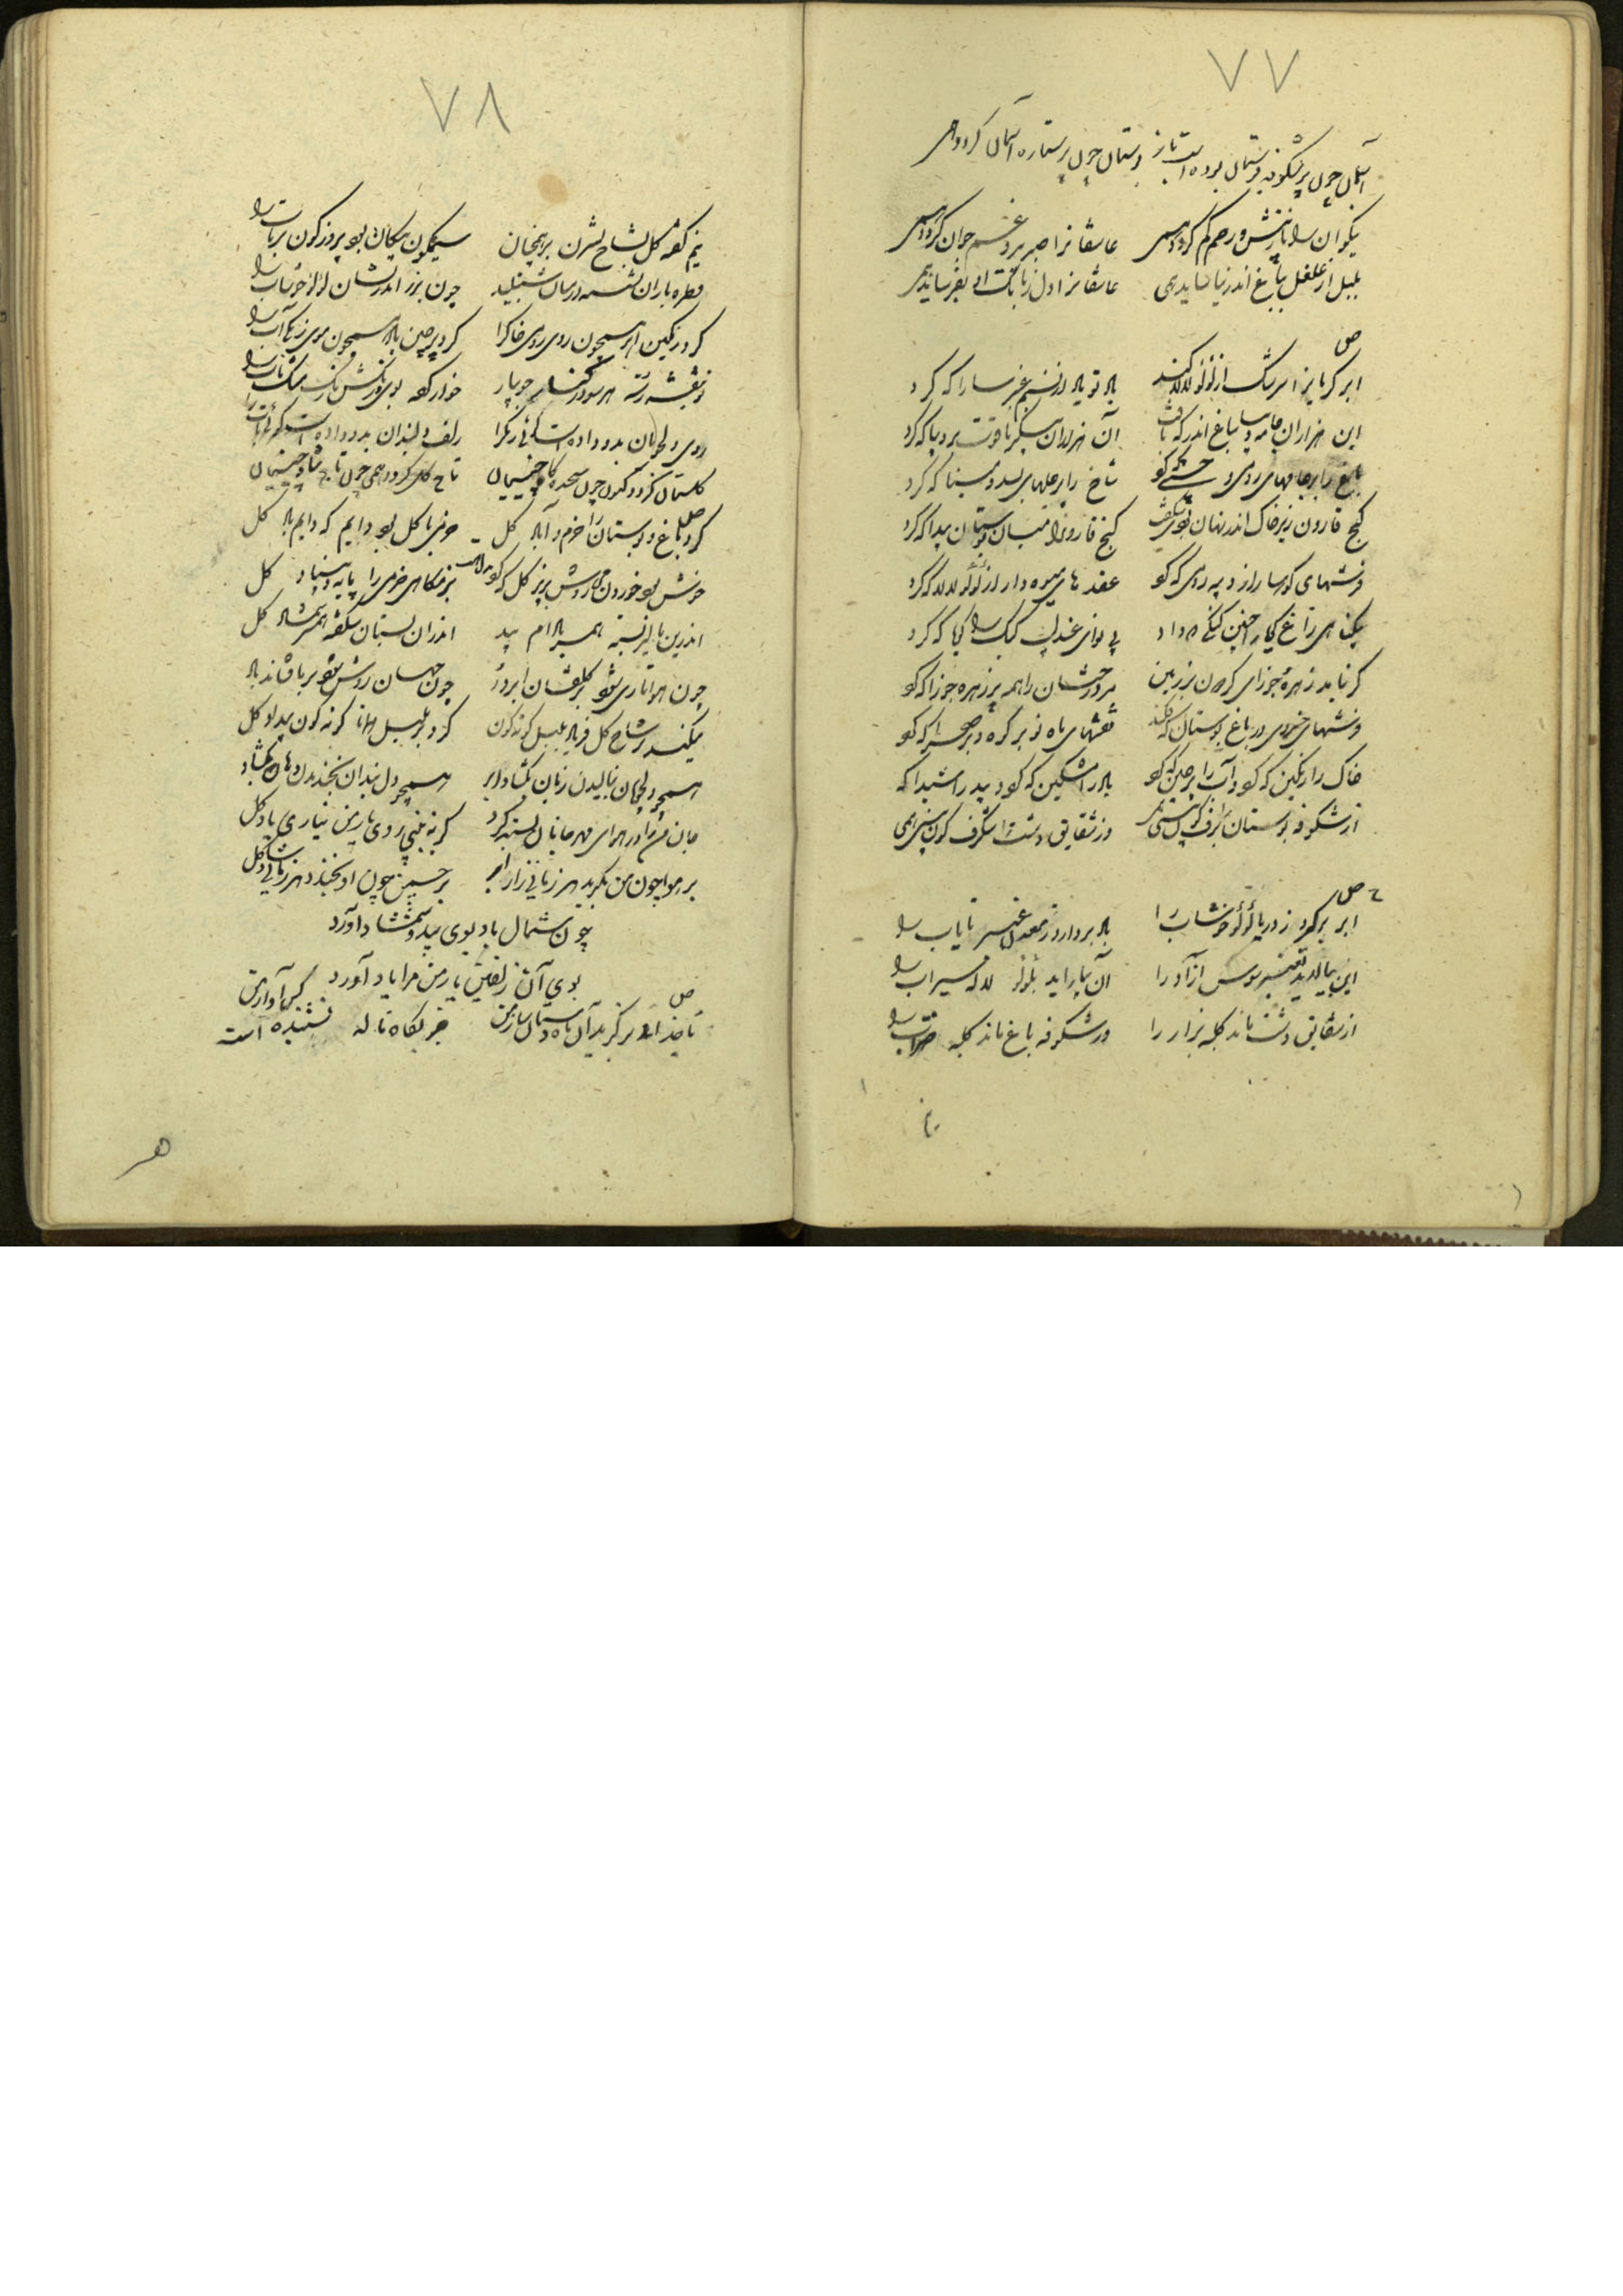 ۷۷
آسمان چون پر شکوفه بوستان بوده است باز بوستان چون پر ستاره آسمان گردد همی
نیکوان را نازش و رحم کم گردد همی عاشقانرا صبر برد و غم جوان گردد همی
بلبل از غلغل بباغ اندر نیاساید همی عاشقانرا دل ز بانگ او بفرساید همی
ص
ابر گریانرا سرشک از لؤلؤ لالا که کرد باد نوبادرا نسیم عنبر سارا که کرد
این هزاران جامه دیبا بباغ اندر که بافت آن هزاران پیکر یاقوت بر دیبا که کرد
باغ را پر جامهای رومی و ششتر که کرد شاخ را پر حلهای بسد و مینا که کرد
گنج قارون زیر خاک اندر نهان بودی شگفت گنج قارون را میان بوستان پیدا که کرد
فرشهای کوهسار از دیبه رومی که کرد عقدهای میوه دار از لؤلؤ لالا که کرد
پی نوای عندلیب کبک را گویا که کرد
گر نیامد زهره و جوزای گردون بر زمین هر درخشان را همه پر زهره و جوزا که کرد
فرشهای خسروی در باغ و بوستان که فکند نقشهای ماه نو بر کوه و بر صحرا که کرد
خاک را رنگین که کرد و آب را پرچین که کرد باد را مشکین که کرد و بید را شیدا که
از شکوفه بوستان وز شقایق دشت را شنگرف گون بینی همی
ص
ابر برگیرد ز دریا لؤلؤ خوشاب را باد بردارد ز معدن عنبر نایاب را
این بیالاید بعنبر سوسن آزاد را آن بیاراید بلؤلؤ لاله سیراب را
از شقایق دشت ماند کلبه بزاز را وز شکوفه باغ ماند کلبه ضراب را
۷۸
نیم کفته گل بشاخ نسترن بر همچنان سیمگون پیکان بود پیروزه گون پرتاب را
قطره باران نشسته در میان شنبلید چون بزر اندر نشان لؤلؤ خوشاب را
کرد رنگین ابر همچون روی رومی خاک را کرد پرچین باد همچون موی زنگی آب را
نو بنفشه رسته هر سو در کنار جویبار خوار کرده بوی و رنگش رنگ مشک ناب را
روی دلجویان بدو داده است گوئی رنگ را زلف دلبندان بدو داده است گوئی تاب را
گلستان گردد کنون چون سجده گاه چینیان تاج گل گردد همی چون تاج شاه چینیان
ص
کرد باغ و بوستان را خرم و آباد گل خرمی با گل بود دایم که دایم باد گل
خوش بود خوردن می روشن بزیر گل که کرد بزمگاه خرمی را پایه و بنیاد گل
اندرین بالیده همبر بادام بید اندران بستان شکفته همبر شمشاد گل
چون هوا تاری شود بر گلفشان ابر دژ چون جهان روشن شود بر ما فشاند باد
میکند بر شاخ گل فریاد بلبل گونه گون کرد بر بلبل همانا گونه گون بیداد گل
همچو دلجویان ببالیدن زبان بگشاد ابر همچو دلبندان بخندیدن دهان بگشاد
جان من در هوای مهر جانان بسته کرد گر نه بینی روی یار من نیاری یاد گل
بر هوا چون من بگرید هر زمانی زار ابر بر چمن چون او بخندد هر زمانی شاد گل
چون شمال باد بوی بید و شمشاد آورد
بوی آن زلفین یار من مرا یاد آورد
ص
تا جدا بر گزید آن ماه دستان ساز من جز بگاه ناله نشنیده است کس آواز من